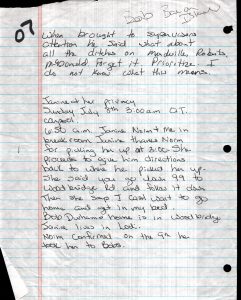 07
Bob
When brought to supervisors
attention he said what about
all the ditches on
Forget it. Prioritize. I
do not know what this means.
Janine at her
Sunday July 8th 3:00am O.T.
6:50 a.m. Janine Norm & Me in
break room Janine thanks Norm
for picking her up at 3:00 She
proceeds to give him directions
back to where he picked her up.
She said you go down 99 to
Woodbridge Rd and follow it down
Then she says I just want to go
home and get in my bed.
Bob home is in Woodbridge
lives in Lodi.
Norm confirmed on the 9th he
took her to Bobs.